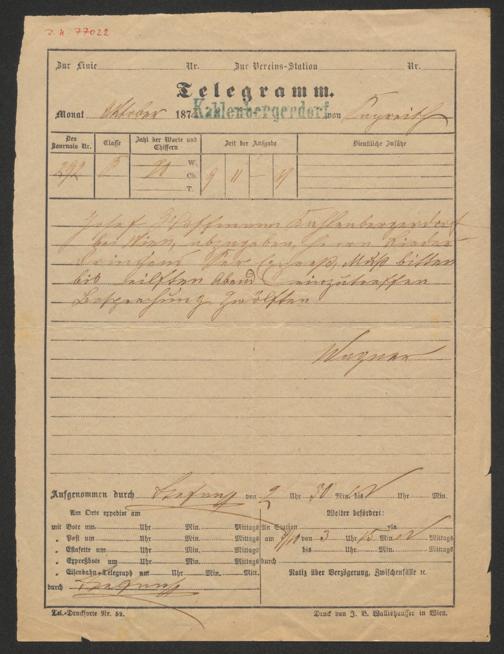 Z. N. 77022
Zur Linie Nr. Zur Vereins-Station Nr.
Telegramm.
Monat Oktober 187 Kahlenbergerdorf von Bayreuth
Des Journals Nr. Classe Zahl der Worte und Chiffern Zeit der Aufgabe Dienstliche Zusätze
W.
Ch.
T.
292 9 11
Josef Hoffmann Kahlenbergerdorf
bei Wien, abzugeben,
bitten
bis eilften Abend einzutreffen
Besprechung Zwölften
Wagner
Aufgenommen durch von 9 Uhr 30 Min. bis Uhr Min.
Am Orte expedirt am Weiter befördert:
mit Bote um Uhr Min. Mittags An Station via
„ Post um Uhr Min. Mittags am 9/10 von 3 Uhr 15 Min. Mittags
„ Estafette um Uhr Min. Mittags bis Uhr Min. Mittags
„ Expreßbote um Uhr Min. Mittags durch
„ Eisenbahn-Telegraph um Uhr Min. Min. Notiz über Verzögerung, Zwischenfälle ec.
durch
Tel.-Drucksorte Nr. 52. Druck von J. B. Wallishausser in Wien.